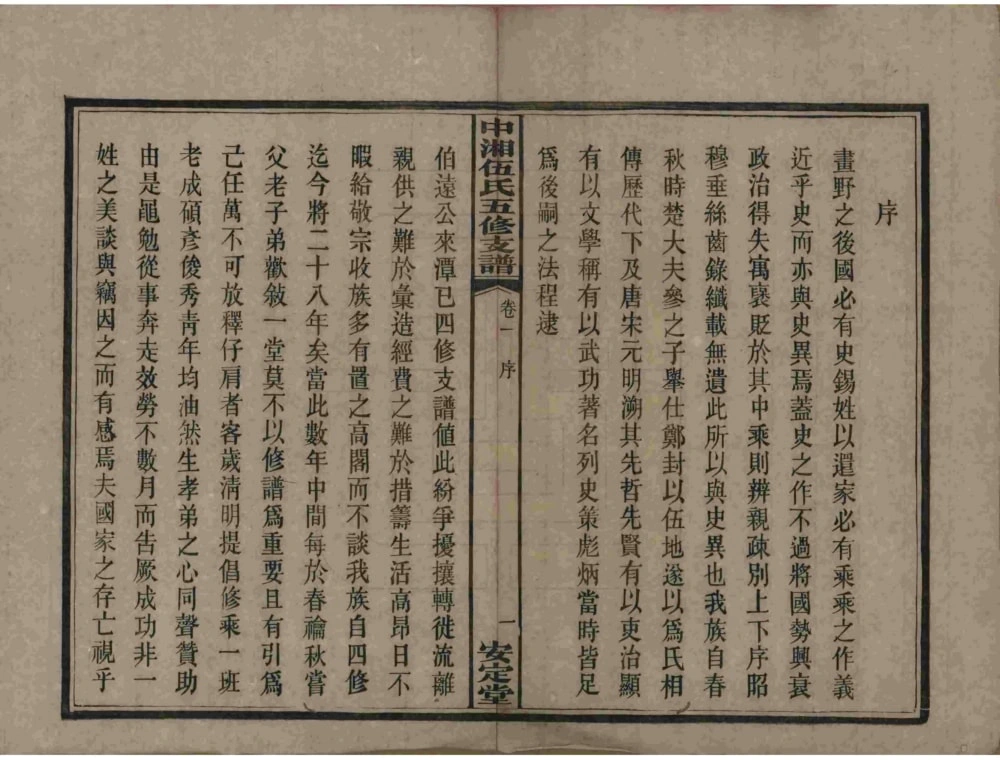 序
畫野之後國必有史錫姓以還家必有乘乘之作義
近乎史而亦與史異焉蓋史之作不過將國勢興衰
政治得失寓褒貶於其中乘則辨親疎別上下序昭
穆垂絲齒錄纖載無遺此所以與史異也我族自春
秋時楚大夫參之子舉仕鄭封以伍地遂以爲氏相
傳歷代下及唐宋元明溯其先哲先賢有以吏治顯
有以文學稱有以武功著名列史策彪炳當時皆足
爲後嗣之法程逮
中湘伍氏五修支譜
卷一
序
一
安定堂
伯遠公來潭已四修支譜値此紛爭擾攘轉徙流離
親供之難於彙造經費之難於措籌生活高昂日不
暇給敬宗收族多有置之高閣而不談我族自四修
迄今將二十八年矣當此數年中間每於春禴秋嘗
父老子弟歡敍一堂莫不以修譜爲重要且有引爲
己任萬不可放釋仔肩者客歲淸明提倡修乘一班
老成碩彥俊秀靑年均油然生孝弟之心同聲贊助
由是黽勉從事奔走效勞不數月而告厥成功非一
姓之美談與竊因之而有感焉夫國家之存亡視乎